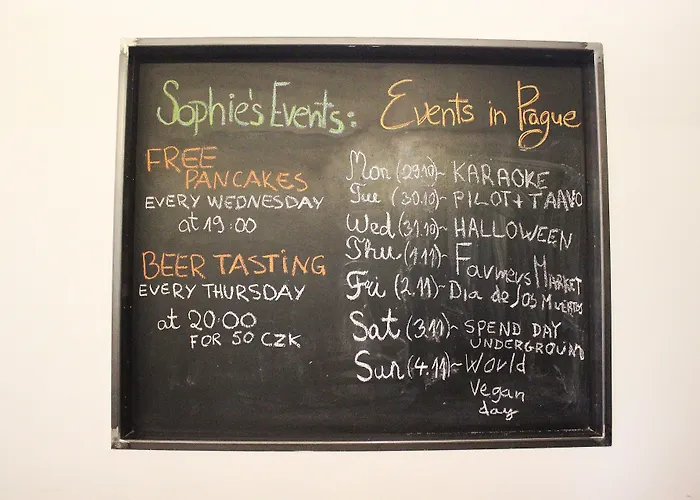 Sophie's Events:
FREE
PANCAKES
EVERY WEDNESDAY
at 19:00
BEER TASTING
EVERY THURSDAY
at 20:00
FOR 50 CZK
Events in Prague
Mon (29.10)~ KARAOKE
Tue (30.10)~ PILOT + TAAVO
Wed (31.10)~ HALLOWEEN
Thu (1.11)~ Farmers Market
Fri (2.11)~ Dia de los Muertos
Sat (3.11)~ SPEND DAY
UNDERGROUND
Sun (4.11)~ World
Vegan
day